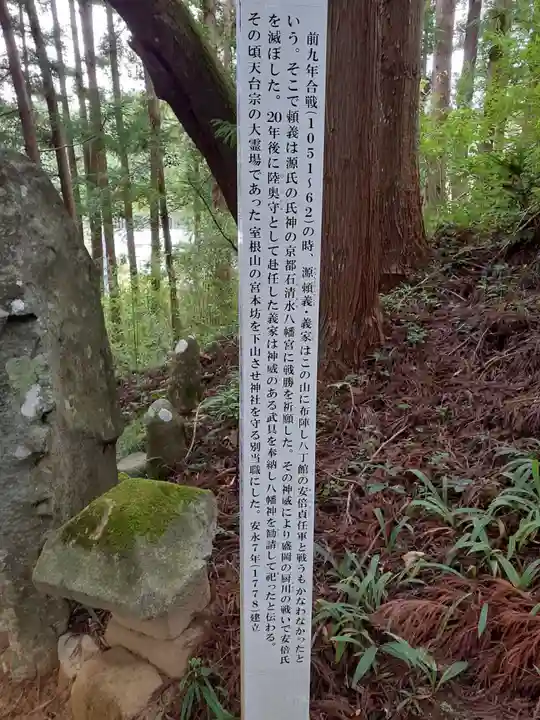 前九年合戦(1051~62)の時、源頼義・義家はこの山に布陣し八丁館の安倍貞任軍と戦うもかなわなかったと
いう。そこで頼義は源氏の氏神の京都石清水八幡宮に戦勝を祈願した。その神威により盛岡の厨川の戦いで安倍氏
を滅ぼした。20年後に陸奥守として赴任した義家は神威のある武具を奉納し八幡神を勧請して祀ったと伝わる。
その頃天台宗の大霊場であった室根山の宮本坊を下山させ神社を守る別当職にした。安永7年(1778)建立